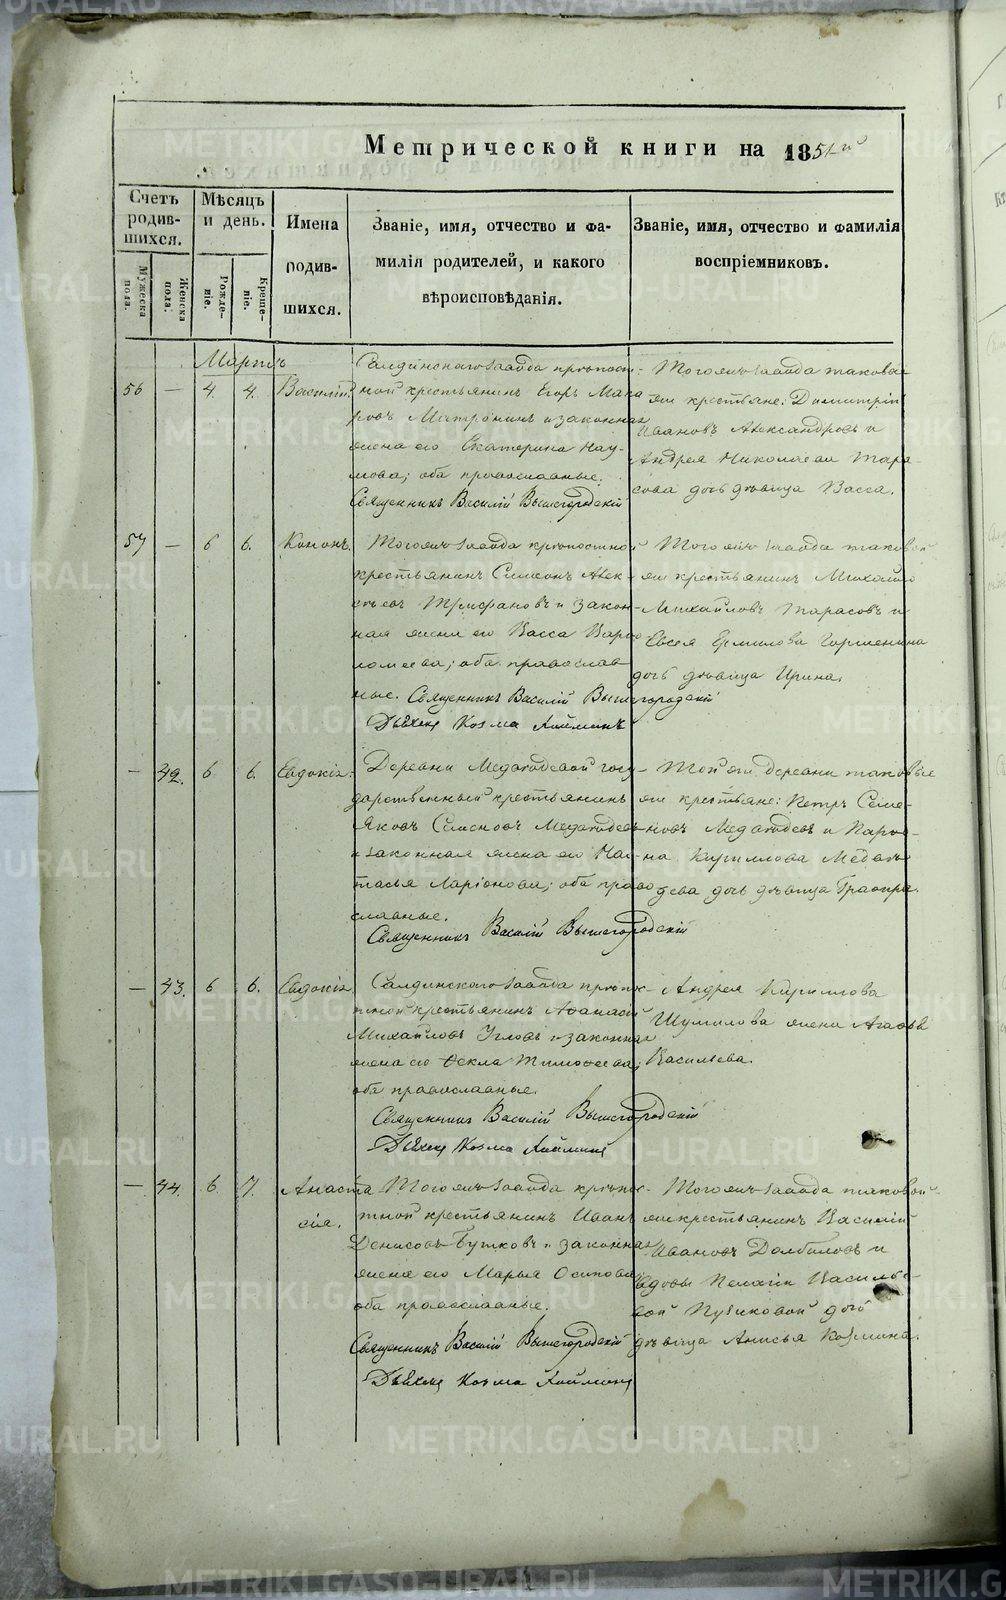 Метрической книги на 1851й
Счетъ родившихся.
Мѣсяцъ и день.
Имена родившихся.
Званіе, имя, отчество и фамилія родителей, и какого вѣроисповѣданія.
Званіе, имя, отчество и фамилія воспріемниковъ.
Мужеска пола.
Женска пола.
Рожденіе.
Крещеніе.
Мартъ
56 — 4. 4. Василій
Салдинскаго завода крѣпост-
ной крестьянинъ Егоръ Мака
ровъ Матрёнинъ и законная
жена его Екатерина Нау-
мова; оба православные.
Священникъ Василій Вышегородскій
Тогожъ завода таковые
же крестьяне: Димитрій
Ивановъ Александровъ и
Андрея Николаева Тара-
сова дочь дѣвица Васса.
57 — 6 6. Кононъ.
Тогожъ завода крѣпостной
крестьянинъ Симеонъ Алек-
сѣевъ Труфановъ и закон-
ная жена его Васса Варѳо
ломеева; оба православ-
ные. Священникъ Василій Вышегородскій
Дьячекъ Козма
Тогожъ завода таковой
же крестьянинъ Михайло
Михайловъ Тарасовъ и
Евсея Ермилова
дочь дѣвица Ирина.
— 42. 6 6. Евдокія.
Деревни Медвѣдевой госу-
дарственный крестьянинъ
Яковъ Семеновъ Медвѣдевъ
и законная жена его Нас-
тасья Ларіонова; оба право
славные.
Священникъ Василій Вышегородскій
Той же деревни таковые
же крестьяне: Петръ Семе-
новъ Медвѣдевъ и
на Кириллова Медвѣ-
дева дочь дѣвица
— 43. 6 6. Евдокія
Салдинскаго завода крѣпос-
тной крестьянинъ Аѳанасій
Михайловъ Угловъ и законная
жена его Ѳекла Тимоѳеева;
оба православные.
Священникъ Василій Вышегородскій
Дьячекъ Козма
Андрея Кириллова
Шумилова жена Агафья
Васильева.
— 44. 6 7. Анаста
сія.
Тогожъ завода крѣпос-
тной крестьянинъ Иванъ
Денисовъ Бушковъ и законная
жена его Марья Осипова
оба православные.
Священникъ Василій Вышегородскій
Дьячекъ Козма
Тогожъ завода таковой
же крестьянинъ Василій
Ивановъ Долбиловъ и
вдовы Пелагіи Василье-
вой Пузиковой дочь
дѣвица Анисья Козмина.
METRIKI.GASO-URAL.RU